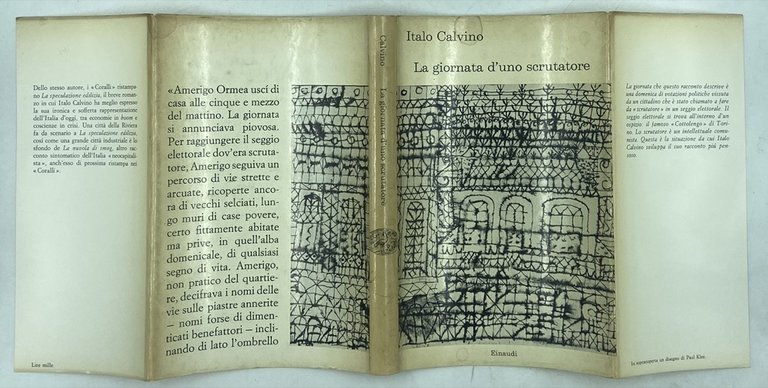 Dello stesso autore, i «Coralli» ristampa-
no La speculazione edilizia, il breve roman-
zo in cui Italo Calvino ha meglio espresso
la sua ironica e sofferta rappresentazione
dell'Italia d'oggi, tra economie in boom e
coscienze in crisi. Una città della Riviera
fa da scenario a La speculazione edilizia,
così come una grande città industriale è lo
sfondo de La nuvola di smog, altro rac-
conto sintomatico dell'Italia «neocapitali-
sta», anch'esso di prossima ristampa nei
«Coralli».
Lire mille
«Amerigo Ormea uscí di
casa alle cinque e mezzo
del mattino. La giornata
si annunciava piovosa.
Per raggiungere il seggio
elettorale dov'era scruta-
tore, Amerigo seguiva un
percorso di vie strette e
arcuate, ricoperte anco-
ra di vecchi selciati, lun-
go muri di case povere,
certo fittamente abitate
ma prive, in quell'alba
domenicale, di qualsiasi
segno di vita. Amerigo,
non pratico del quartie-
re, decifrava i nomi delle
vie sulle piastre annerite
– nomi forse di dimen-
ticati benefattori – incli-
nando di lato l'ombrello
Calvino
La giornata d'uno scrutatore
Italo Calvino
La giornata d'uno scrutatore
Einaudi
La giornata che questo racconto descrive è
una domenica di votazioni politiche vissuta
da un cittadino che è stato chiamato a fare
da «scrutatore» in un seggio elettorale. Il
seggio elettorale si trova all'interno d'un
ospizio: il famoso «Cottolengo» di Tori-
no. Lo scrutatore è un intellettuale comu-
nista. Questa è la situazione da cui Italo
Calvino sviluppa il suo racconto piú pen-
soso.
In sopraccoperta un disegno di Paul Klee.